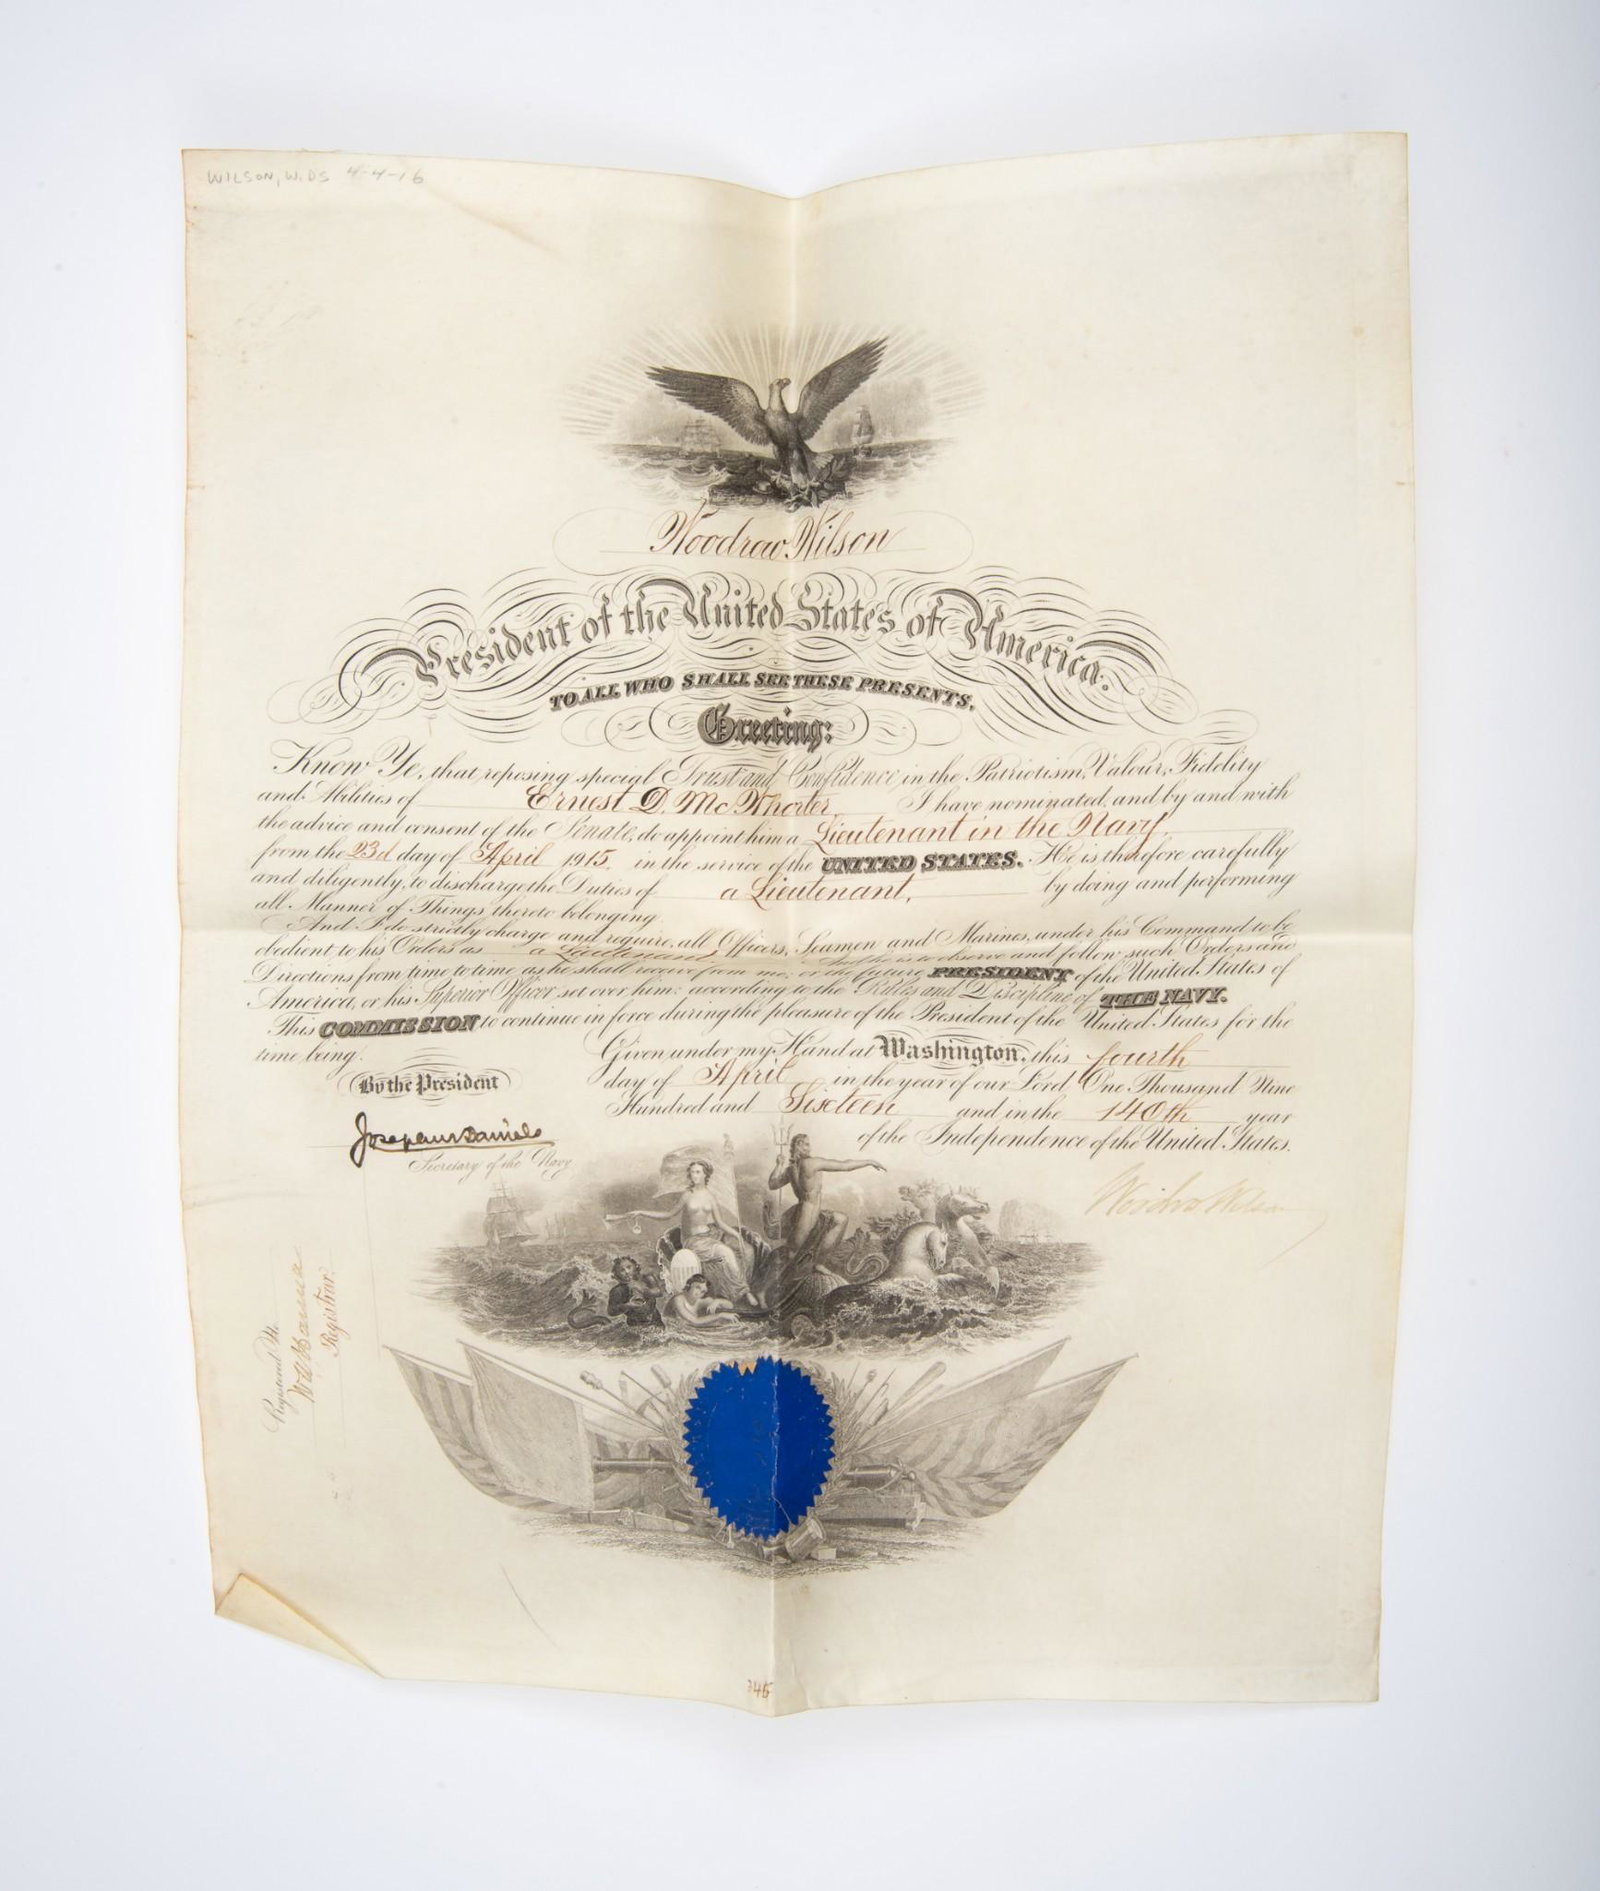 WILSON, W. DS 4-4-16
Woodrow Wilson
President of the United States of America.
TO ALL WHO SHALL SEE THESE PRESENTS,
Greeting:
Know Ye, that reposing special Trust and Confidence in the Patriotism, Valour, Fidelity
and Abilities of Ernest D. McWhorter, I have nominated, and by and with
the advice and consent of the Senate, do appoint him a Lieutenant in the Navy,
from the 23d day of April 1915, in the service of the UNITED STATES. He is therefore carefully
and diligently, to discharge the Duties of a Lieutenant, by doing and performing
all Manner of Things thereto belonging.
And I do strictly charge and require, all Officers, Seamen and Marines, under his Command to be
obedient to his Orders as a Lieutenant. And he is to observe and follow such Orders and
Directions from time to time as he shall receive from me, or the future PRESIDENT of the United States of
America, or his Superior Officer set over him: according to the Rules and Discipline of THE NAVY.
This COMMISSION to continue in force during the pleasure of the President of the United States for the
time being.
Given under my Hand at Washington, this fourth
day of April in the year of our Lord One Thousand Nine
Hundred and Sixteen and in the 140th year
of the Independence of the United States.
By the President
Josephus Daniels
Secretary of the Navy
Woodrow Wilson
Registered
Registrar
345